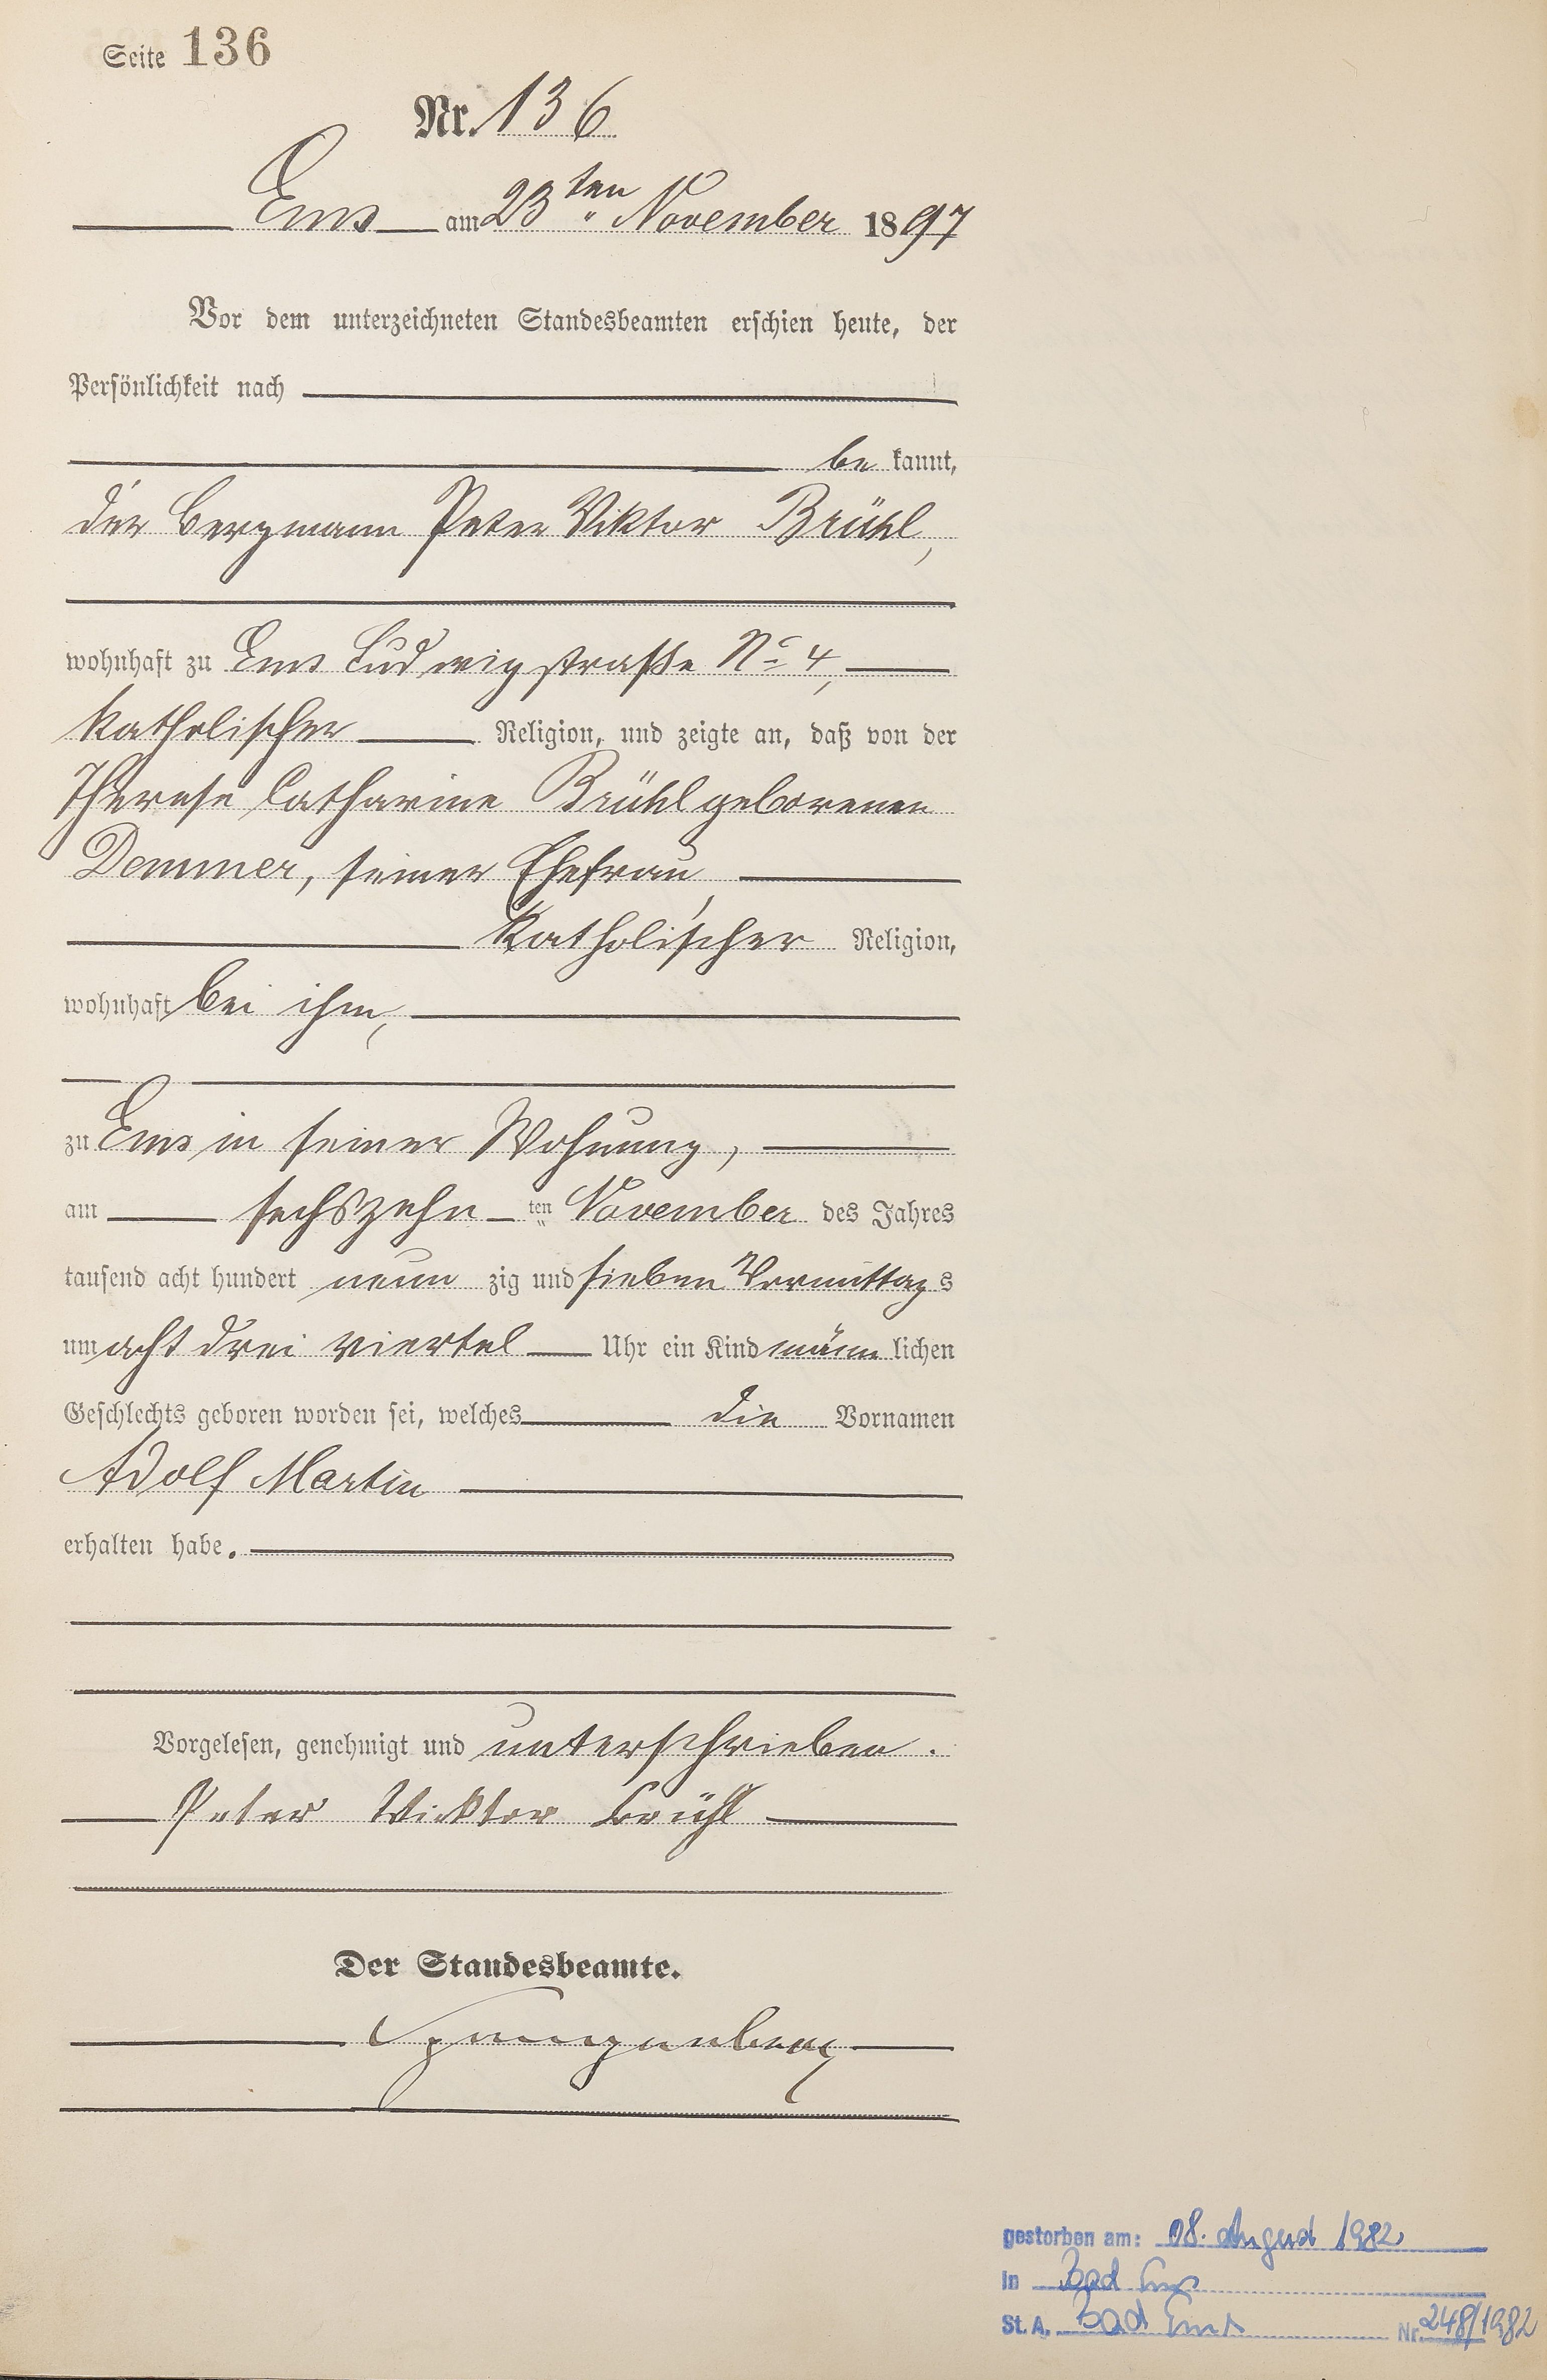 Seite 136
Nr. 136
Ems am 23ten November 1897
Vor dem unterzeichneten Standesbeamten erschien heute, der
Persönlichkeit nach
be kannt,
der Bergmann Peter Viktor Brühl,
wohnhaft zu Ems Ludwigstraße No 4,
katholischer Religion, und zeigte an, daß von der
Therese Catharine Brühl geborenen
Demmer, seiner Ehefrau,
katholischer Religion,
wohnhaft bei ihm,
zu Ems in seiner Wohnung,
am sechszehn ten November des Jahres
tausend acht hundert neun zig und sieben Vormittags
um acht drei viertel Uhr ein Kind männ lichen
Geschlechts geboren worden sei, welches die Vornamen
Adolf Martin
erhalten habe.
Vorgelesen, genehmigt und unterschrieben.
Peter Wicktor Brühl
Der Standesbeamte.
Spangenberg
gestorben am: 08. August 1982
in Bad Ems
St. A. Bad Ems Nr. 248/1982